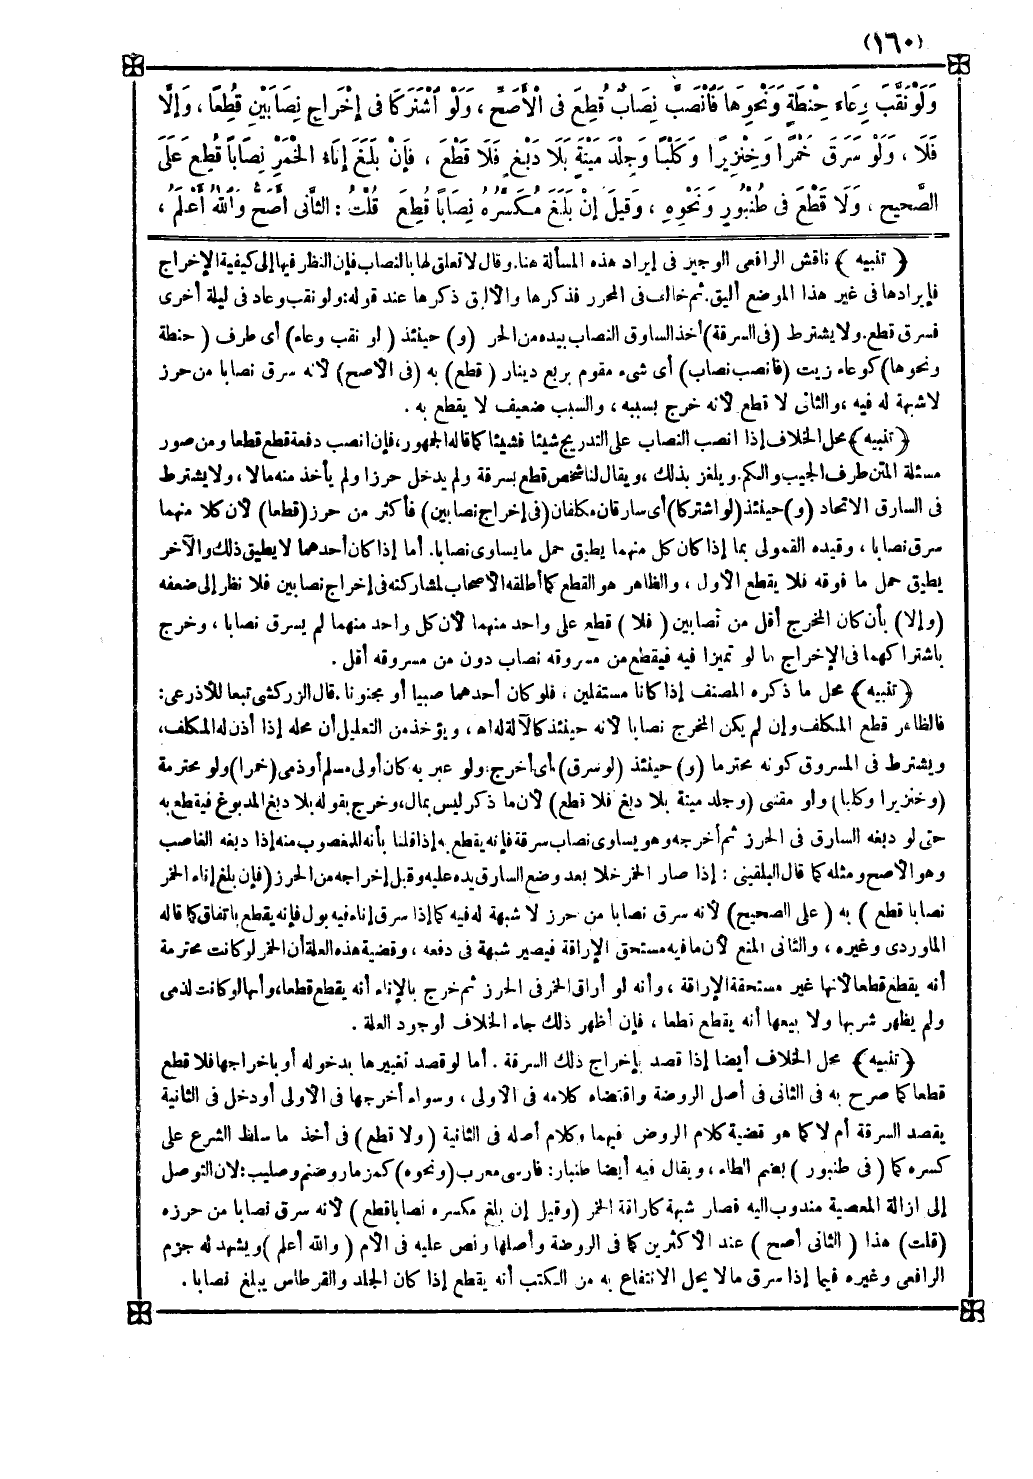 (١٦٠)
وَلَوْ نَقَبَ وِعَاءَ حِنْطَةٍ وَنَحْوِهَا فَانْصَبَّ نِصَابٌ قُطِعَ فِى الْأَصَحِّ ، وَلَوِ اشْتَرَكَا فِى إِخْرَاجِ نِصَابَيْنِ قُطِعَا ، وَإِلَّا
فَلَا ، وَلَوْ سَرَقَ خَمْرًا وَخِنْزِيرًا وَكَلْبًا وَجِلْدَ مَيْتَةٍ بِلَا دَبْغٍ فَلَا قَطْعَ ، فَإِنْ بَلَغَ إِنَاءُ الْخَمْرِ نِصَابًا قُطِعَ عَلَى
الصَّحِيحِ ، وَلَا قَطْعَ فِى طُنْبُورٍ وَنَحْوِهِ ، وَقِيلَ إِنْ بَلَغَ مُكَسَّرُهُ نِصَابًا قُطِعَ قُلْتُ : الثَّانِى أَصَحُّ وَاللّٰهُ أَعْلَمُ ،
﴿ تنبيه ﴾ ناقش الرافعى الوجيز فى إيراد هذه المسألة هنا. وقال لا تعلق لها بالنصاب فإن النظر فيها إلى كيفية الإخراج
فإيرادها فى غير هذا الموضع أليق. ثم خالف فى المحرر فذكرها والأليق ذكرها عند قوله: ولو نقب وعاد فى ليلة أخرى
فسرق قطع. ولا يشترط (فى السرقة) أخذ السارق النصاب بيده من الحرز (و) حينئذ (لو نقب وعاء) أى طرف (حنطة
ونحوها) كوعاء زيت (فانصب نصاب) أى شىء مقوم بربع دينار (قطع) به (فى الأصح) لأنه سرق نصابا من حرز
لا شبهة له فيه ، والثانى لا قطع لأنه خرج بسببه ، والسبب ضعيف لا يقطع به .
﴿ تنبيه ﴾ محل الخلاف إذا انصب النصاب على التدريج شيئا فشيئا كما قاله الجمهور، فإن انصب دفعة قطع قطعا ومن صور
مسئلة المتن طرف الجيب والكم. ويلغز بذلك ، ويقال لنا شخص قطع بسرقة ولم يدخل حرزا ولم يأخذ منه مالا ، ولا يشترط
فى السارق الاتحاد (و) حينئذ (لو اشتركا) أى سارقان مكلفان (فى إخراج نصابين) فأكثر من حرز (قطعا) لأن كلا منهما
سرق نصابا ، وقيده القمولى بما إذا كان كل منهما يطيق حمل ما يساوى نصابا. أما إذا كان أحدهما لا يطيق ذلك والآخر
يطيق حمل ما فوقه فلا يقطع الأول ، والظاهر هو القطع كما أطلقه الأصحاب لمشاركته فى إخراج نصابين فلا نظر إلى ضعفه
(وإلا) بأن كان المخرج أقل من نصابين (فلا) قطع على واحد منهما لأن كل واحد منهما لم يسرق نصابا ، وخرج
باشتراكهما فى الإخراج ما لو تميزا فيه فيقطع من مسروقه نصاب دون من مسروقه أقل .
﴿ تنبيه ﴾ محل ما ذكره المصنف إذا كانا مستقلين ، فلو كان أحدهما صبيا أو مجنونا . قال الزركشى تبعا للأذرعى:
فالظاهر قطع المكلف وإن لم يكن المخرج نصابا لأنه حينئذ كالآلة له اه ، ويؤخذ من التعليل أن محله إذا أذن له المكلف،
ويشترط فى المسروق كونه محترما (و) حينئذ (لو سرق) أى أخرج: ولو عبر به كان أولى مسلم أو ذمى (خمرا) ولو محترمة
(وخنزيرا وكلبا) ولو مقتنى (وجلد ميتة بلا دبغ فلا قطع) لأن ما ذكر ليس بمال، وخرج بقوله بلا دبغ المدبوغ فيقطع به
حتى لو دبغه السارق فى الحرز ثم أخرجه وهو يساوى نصاب سرقة فإنه يقطع به إذا قلنا بأنه للمغصوب منه إذا دبغه الغاصب
وهو الأصح ومثله كما قال البلقينى : إذا صار الخمر خلا بعد وضع السارق يده عليه وقبل إخراجه من الحرز (فإن بلغ إناء الخمر
نصابا قطع) به (على الصحيح) لأنه سرق نصابا من حرز لا شبهة له فيه كما إذا سرق إناء فيه بول فإنه يقطع باتفاق كما قاله
الماوردى وغيره ، والثانى المنع لأن ما فيه مستحق الإراقة فيصير شبهة فى دفعه ، وقضية هذه العلة أن الخمر لو كانت محترمة
أنه يقطع قطعا لأنها غير مستحقة الإراقة ، وأنه لو أراق الخمر فى الحرز ثم خرج بالإناء أنه يقطع قطعا، وأنها لو كانت لذمى
ولم يظهر شربها ولا بيعها أنه يقطع قطعا ، فإن أظهر ذلك جاء الخلاف لوجود العلة .
﴿ تنبيه ﴾ محل الخلاف أيضا إذا قصد بإخراج ذلك السرقة . أما لو قصد تغييرها بدخوله أو بإخراجها فلا قطع
قطعا كما صرح به فى الثانى فى أصل الروضة واقتضاه كلامه فى الأولى ، وسواء أخرجها فى الأولى أو دخل فى الثانية
يقصد السرقة أم لا كما هو قضية كلام الروض فيهما وكلام أصله فى الثانية (ولا قطع) فى أخذ ما سلط الشرع على
كسره كما (فى طنبور) بضم الطاء ، ويقال فيه أيضا طنبار: فارسى معرب (ونحوه) كمزمار وصنم وصليب: لأن التوصل
إلى ازالة المعصية مندوب اليه فصار شبهة كاراقة الخمر (وقيل إن بلغ مكسره نصابا قطع) لأنه سرق نصابا من حرزه
(قلت) هذا (الثانى أصح) عند الأكثرين كما فى الروضة وأصلها ونص عليه فى الأم (والله أعلم) ويشهد له جزم
الرافعى وغيره فيما إذا سرق مالا يحل الانتفاع به من الكتب أنه يقطع إذا كان الجلد والقرطاس يبلغ نصابا .